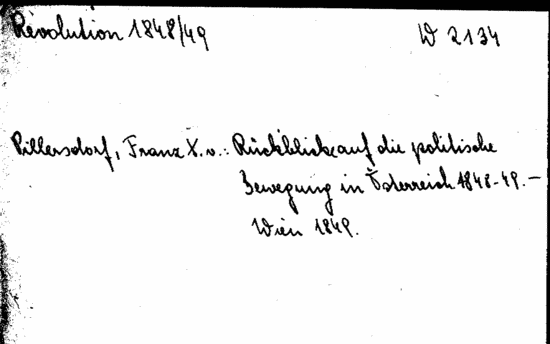 Revolution 1848/49 W 2134
Pillersdorf, Franz X. v.: Rückblick auf die politische
Bewegung in Österreich 1848-49.—
Wien 1849.